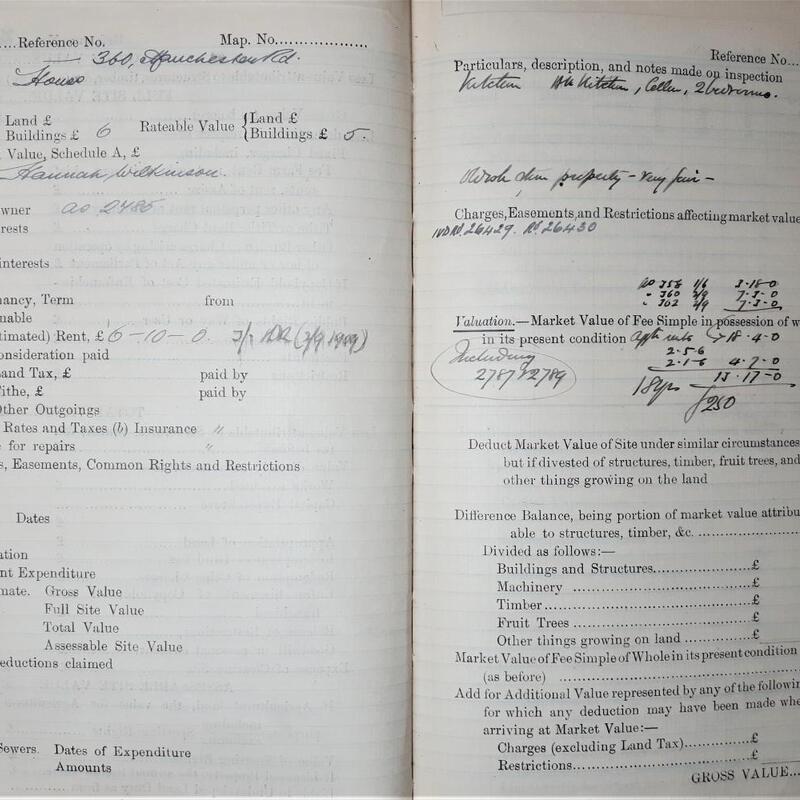 ....Reference No. Map. No...................
360, Manchester Rd.
House
Land £
Buildings £ 6 Rateable Value { Land £
Buildings £ 5.
Value, Schedule A, £
Hannah Wilkinson.
wner as 2485
rests
interests
nancy, Term from
nable
stimated) Rent, £ 6-10-0. (2/9 1909)
onsideration paid
Land Tax, £ paid by
Tithe, £ paid by
Other Outgoings
Rates and Taxes (b) Insurance "
e for repairs "
s, Easements, Common Rights and Restrictions
Dates
ation
nt Expenditure
mate. Gross Value
Full Site Value
Total Value
Assessable Site Value
eductions claimed
Sewers. Dates of Expenditure
Amounts
Reference No...
Particulars, description, and notes made on inspection
Kitchen Kitchen, Cellar, 2 bedrooms.
property - very fair -
Charges, Easements, and Restrictions affecting market value
26429. 26430
No 358 1/6 3-18-0
" 360 2/9 7-3-0
" 362 2/9 7-3-0
Valuation.—Market Value of Fee Simple in possession of w
in its present condition 18-4-0
Including
2787 & 2789
2-5-6
2-1-6 4-7-0
13-17-0
18 yrs
£250
Deduct Market Value of Site under similar circumstances
but if divested of structures, timber, fruit trees, and
other things growing on the land
Difference Balance, being portion of market value attribu
able to structures, timber, &c. ......................
Divided as follows:—
Buildings and Structures....................£
Machinery ....................................£
Timber..........................................£
Fruit Trees ....................................£
Other things growing on land ...............£
Market Value of Fee Simple of Whole in its present condition
(as before) ..........................................
Add for Additional Value represented by any of the followin
for which any deduction may have been made whe
arriving at Market Value:—
Charges (excluding Land Tax)..............£
Restrictions...................................£
GROSS VALUE...